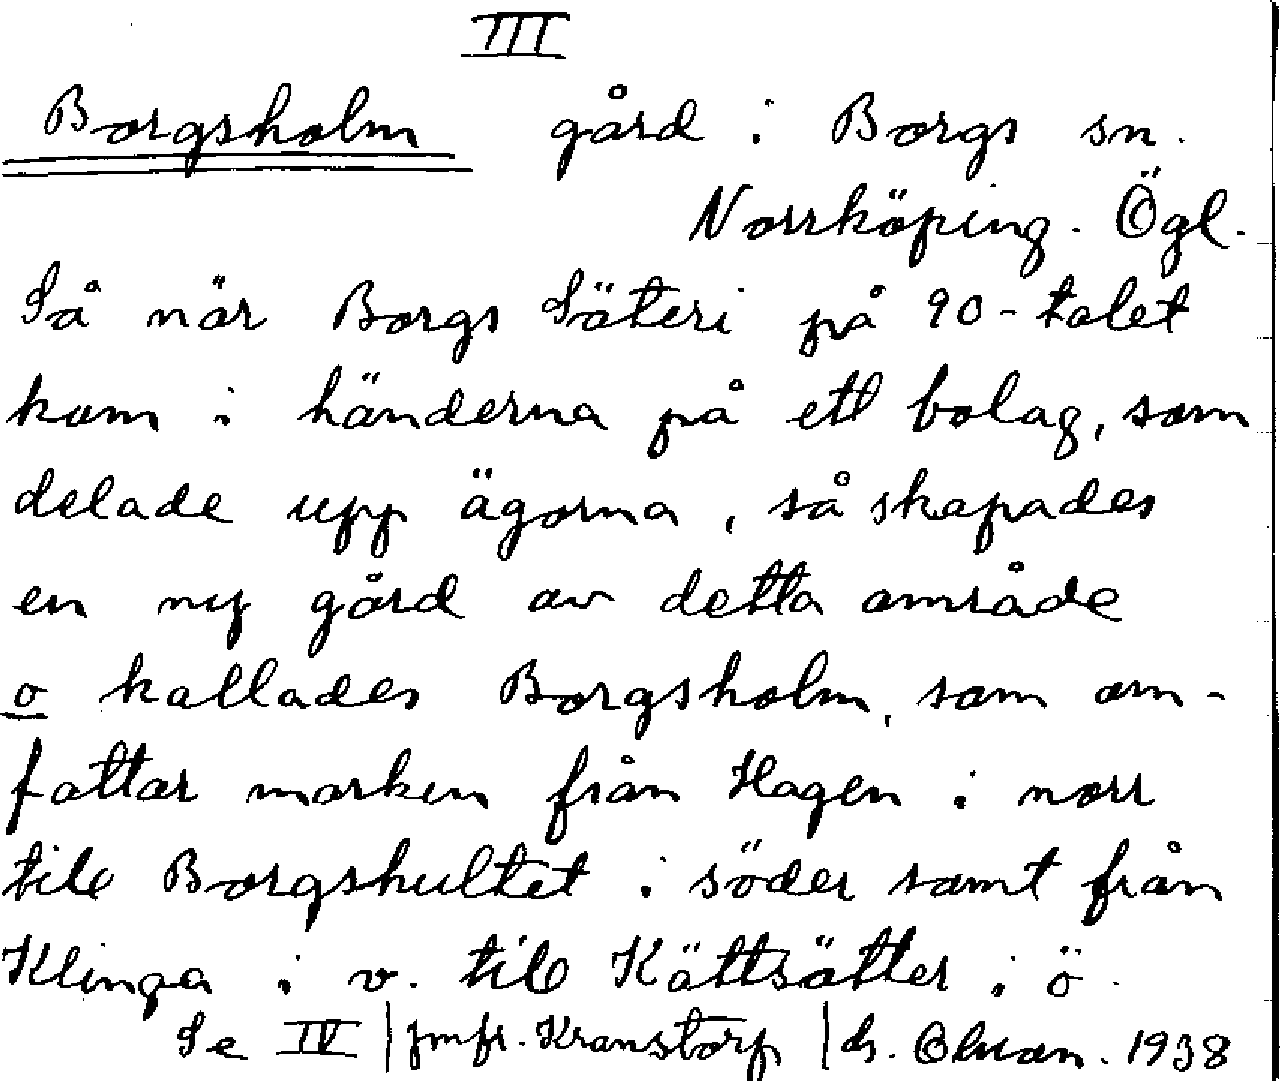 III
Borgsholm gård i Borgs sn.
Norrköping. Ögl.
Så när Borgs Säteri på 90-talet
kom i händerna på ett bolag, som
delade upp ägorna, så skapades
en ny gård av detta område
o kallades Borgsholm, som om-
fattar marken från Hagen i norr
till Borgshultet i söder samt från
Klinga i v. till Kättsätter i ö.
Se IV | jmfr. Kranstorp |
1938